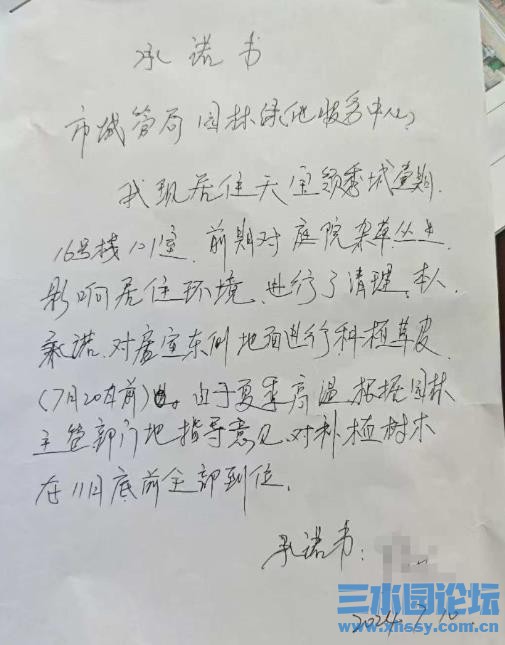 承诺书
市城管局园林绿化服务中心:
我现居住天宝颂季城壹期
16号栋101室，前期对庭院杂草丛生
影响居住环境，进行了清理。本人
承诺，对房室东侧地面进行补植草皮
(7月20日前)。由于夏季高温，根据园林
主管部门地指导意见，对补植树木
在11月底前全部到位。
承诺书:
2024.7.10
三水圆论坛
www.xnssy.com.cn